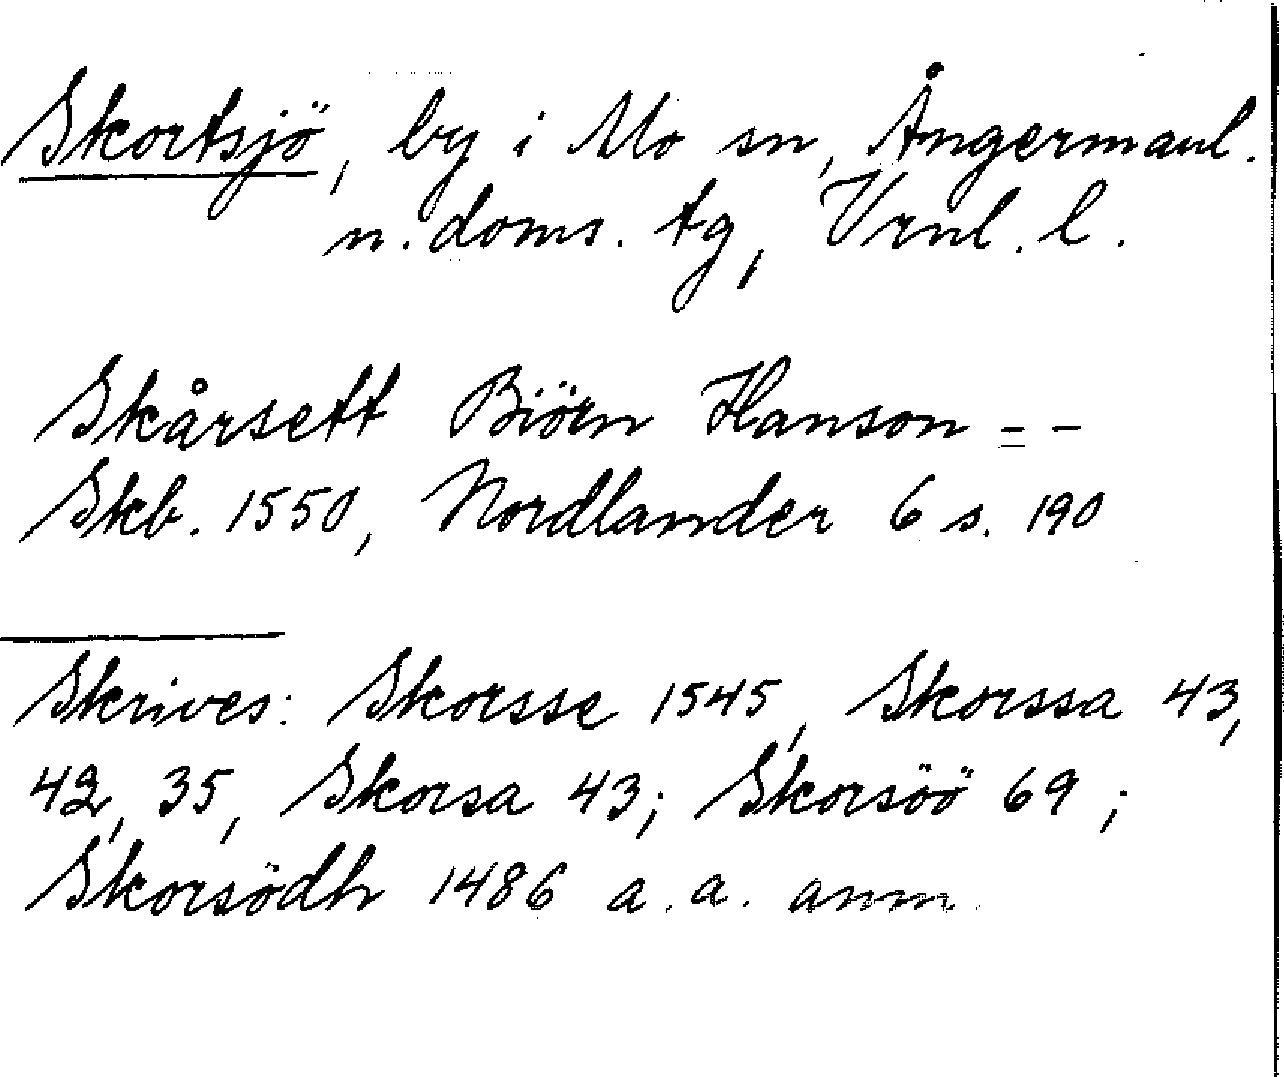 Skortsjö, by i Mo sn, Ångermanl.
n. doms. tg, Vrnl. l.
Skårsett Biörn Hanson = -
Skb. 1550, Nordlander 6 s. 190
Skrives: Skorsse 1545, Skorssa 43,
42, 35, Skorsa 43; Skorsöö 69;
Skorsödh 1486 a. a. anm.